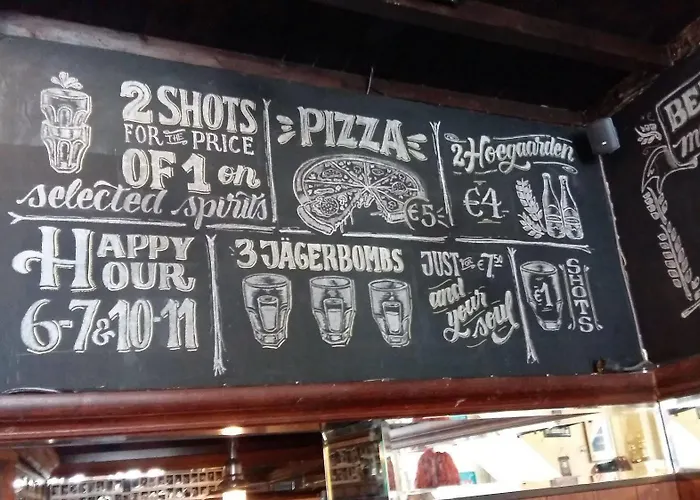 2 SHOTS
FOR THE PRICE
OF 1 on
selected spirits
PIZZA
€5
2 Hoegaarden
€4
HAPPY
HOUR
6-7 & 10-11
3 JÄGERBOMBS
JUST FOR €7.50
and
your
soul
€1
SHOTS